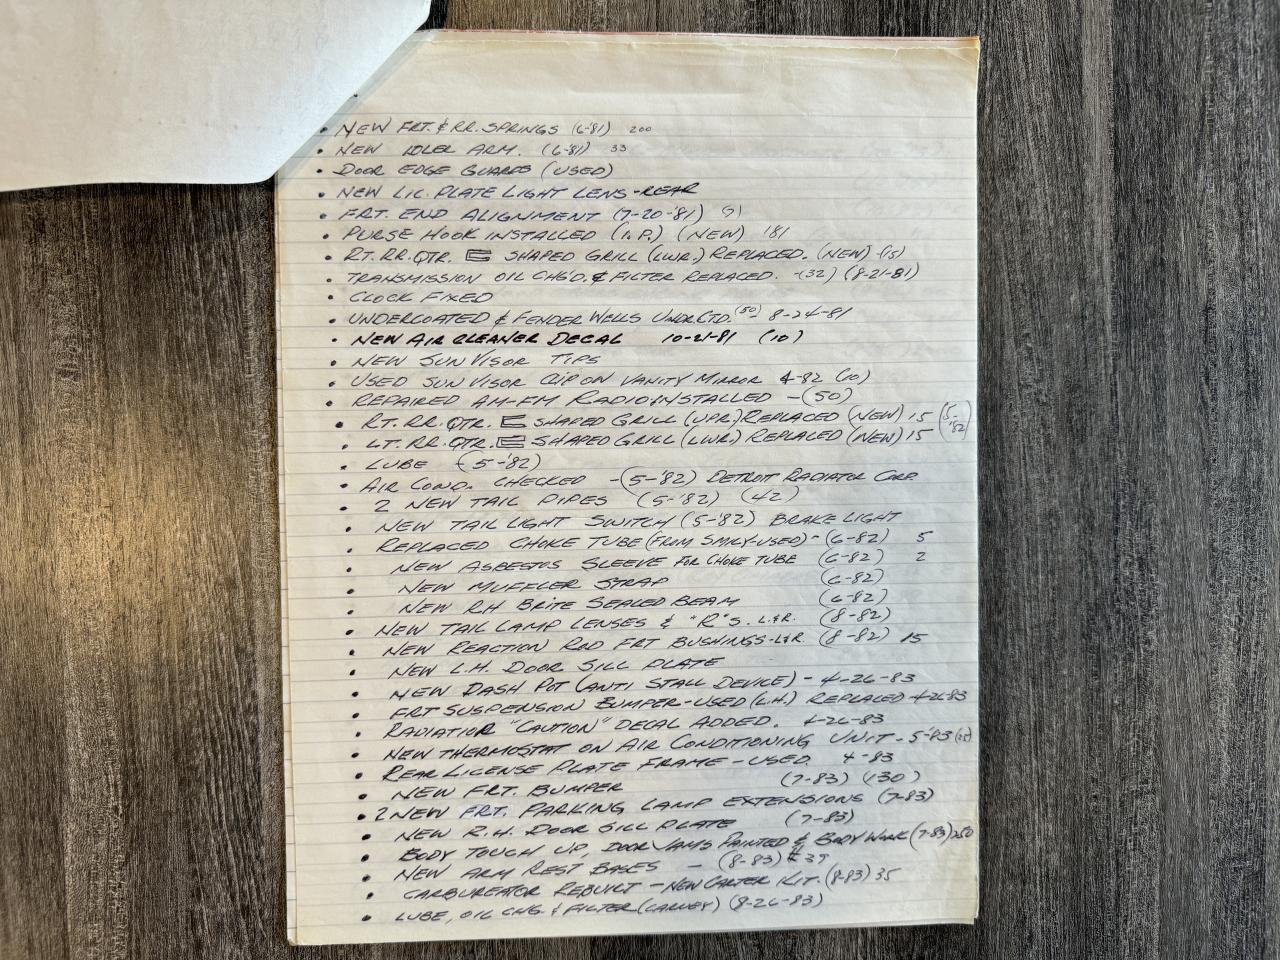 • NEW FRT. & RR. SPRINGS (6-81) 200
• NEW IDLER ARM. (6-81) 33
• DOOR EDGE GUARDS (USED)
• NEW LIC. PLATE LIGHT LENS-REAR
• FRT. END ALIGNMENT (7-20-'81)
• PURSE HOOK INSTALLED (I.P.) (NEW) '81
• RT. RR. QTR. E SHAPED GRILL (LWR.) REPLACED. (NEW) (15)
• TRANSMISSION OIL CHG'D. & FILTER REPLACED. -(32) (8-21-81)
• CLOCK FIXED
• UNDERCOATED & FENDER WELLS UNDRCTD. (50)- 8-24-81
• NEW AIR CLEANER DECAL 10-21-81 (10)
• NEW SUN VISOR TIPS
• USED SUN VISOR CLIP ON VANITY MIRROR 4-82 (10)
• REPAIRED AM-FM RADIO INSTALLED -(50)
• RT. RR. QTR. E SHAPED GRILL (UPR.) REPLACED (NEW) 15 (5-'82)
• LT. RR. QTR. E SHAPED GRILL (LWR.) REPLACED (NEW) 15
• LUBE (5-'82)
• AIR COND. CHECKED -(5-'82) DETROIT RADIATOR CORP.
• 2 NEW TAIL PIPES (5-'82) (42)
• NEW TAIL LIGHT SWITCH (5-'82) BRAKE LIGHT
• REPLACED CHOKE TUBE (FROM SMILY-USED)- (6-82) 5
• NEW ASBESTOS SLEEVE FOR CHOKE TUBE (6-82) 2
• NEW MUFFLER STRAP (6-82)
• NEW RH BRITE SEALED BEAM (6-82)
• NEW TAIL LAMP LENSES & "R"S. L&R. (8-82)
• NEW REACTION ROD FRT BUSHINGS-L&R (8-82) 15
• NEW L.H. DOOR SILL PLATE
• NEW DASH POT (ANTI STALL DEVICE) - 4-26-83
• FRT SUSPENSION BUMPER-USED (L.H.) REPLACED 4-26-83
• RADIATIOR "CAUTION" DECAL ADDED. 4-26-83
• NEW THERMOSTAT ON AIR CONDITIONING UNIT - 5-'83
• REAR LICENSE PLATE FRAME - USED. 4-83
• NEW FRT. BUMPER (7-83) (130)
• 2 NEW FRT. PARKING LAMP EXTENSIONS (7-83)
• NEW R.H. DOOR SILL PLATE (7-83)
• BODY TOUCH UP, DOOR JAMS PAINTED & BODY WORK (7-83) 250
• NEW ARM REST BASES - (8-83) $39
• CARBUREATOR REBUILT - NEW CARTER KIT. (8-83) 35
• LUBE, OIL CHG. & FILTER (CARNEY) (8-26-83)